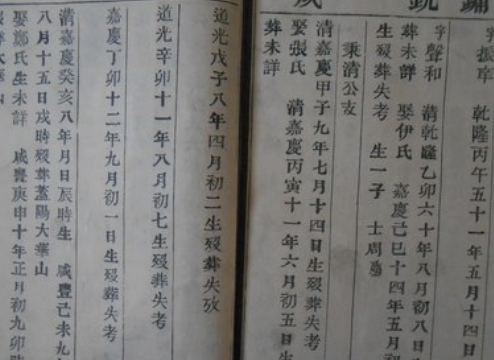 字振宰　乾隆丙午五十一年五月十四日
字聲和　清乾隆乙卯六十年八月初八日
葬未詳　娶伊氏　嘉慶己巳十四年五月
生歿葬失考　生一子　士周
秉清公支
清嘉慶甲子九年七月十四日生歿葬失考
娶張氏　清嘉慶丙寅十一年六月初五日生
葬未詳
道光戊子八年四月初二生歿葬失攷
道光辛卯十一年八月初七生歿葬失考
嘉慶丁卯十二年九月初一日生歿葬失考
清嘉慶癸亥八年月日辰時生　咸豐己未九
八月十五日戌時歿葬蓋陽大葉山
娶鄭氏生未詳　咸豐庚申十年正月初九卯時